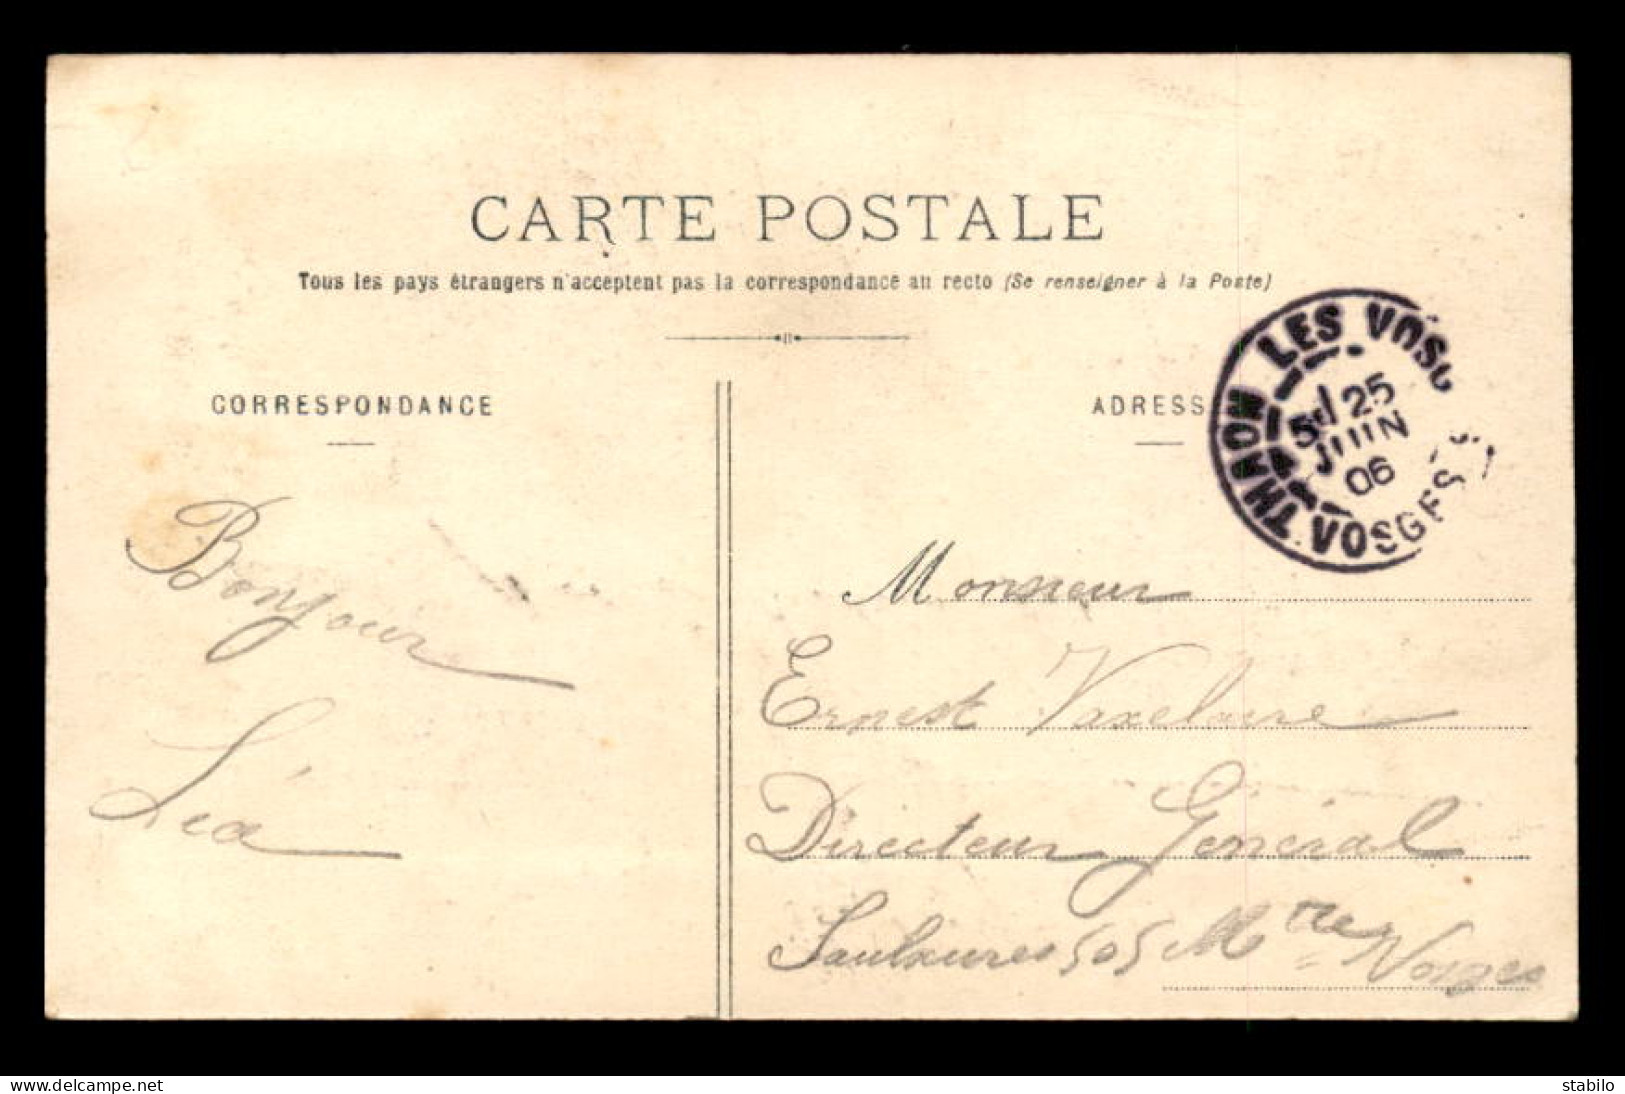 CARTE POSTALE
Tous les pays étrangers n'acceptent pas la correspondance au recto (Se renseigner à la Poste)
CORRESPONDANCE
ADRESS
THAON LES VOSG
5E/25
JUIN
06
VOSGES
Bonjour
Léa
Monsieur
Ernest Vaxelaire
Directeur Général
Saulxures s/s Mtte = Vosges
https://www.delcampe.net
stabilo